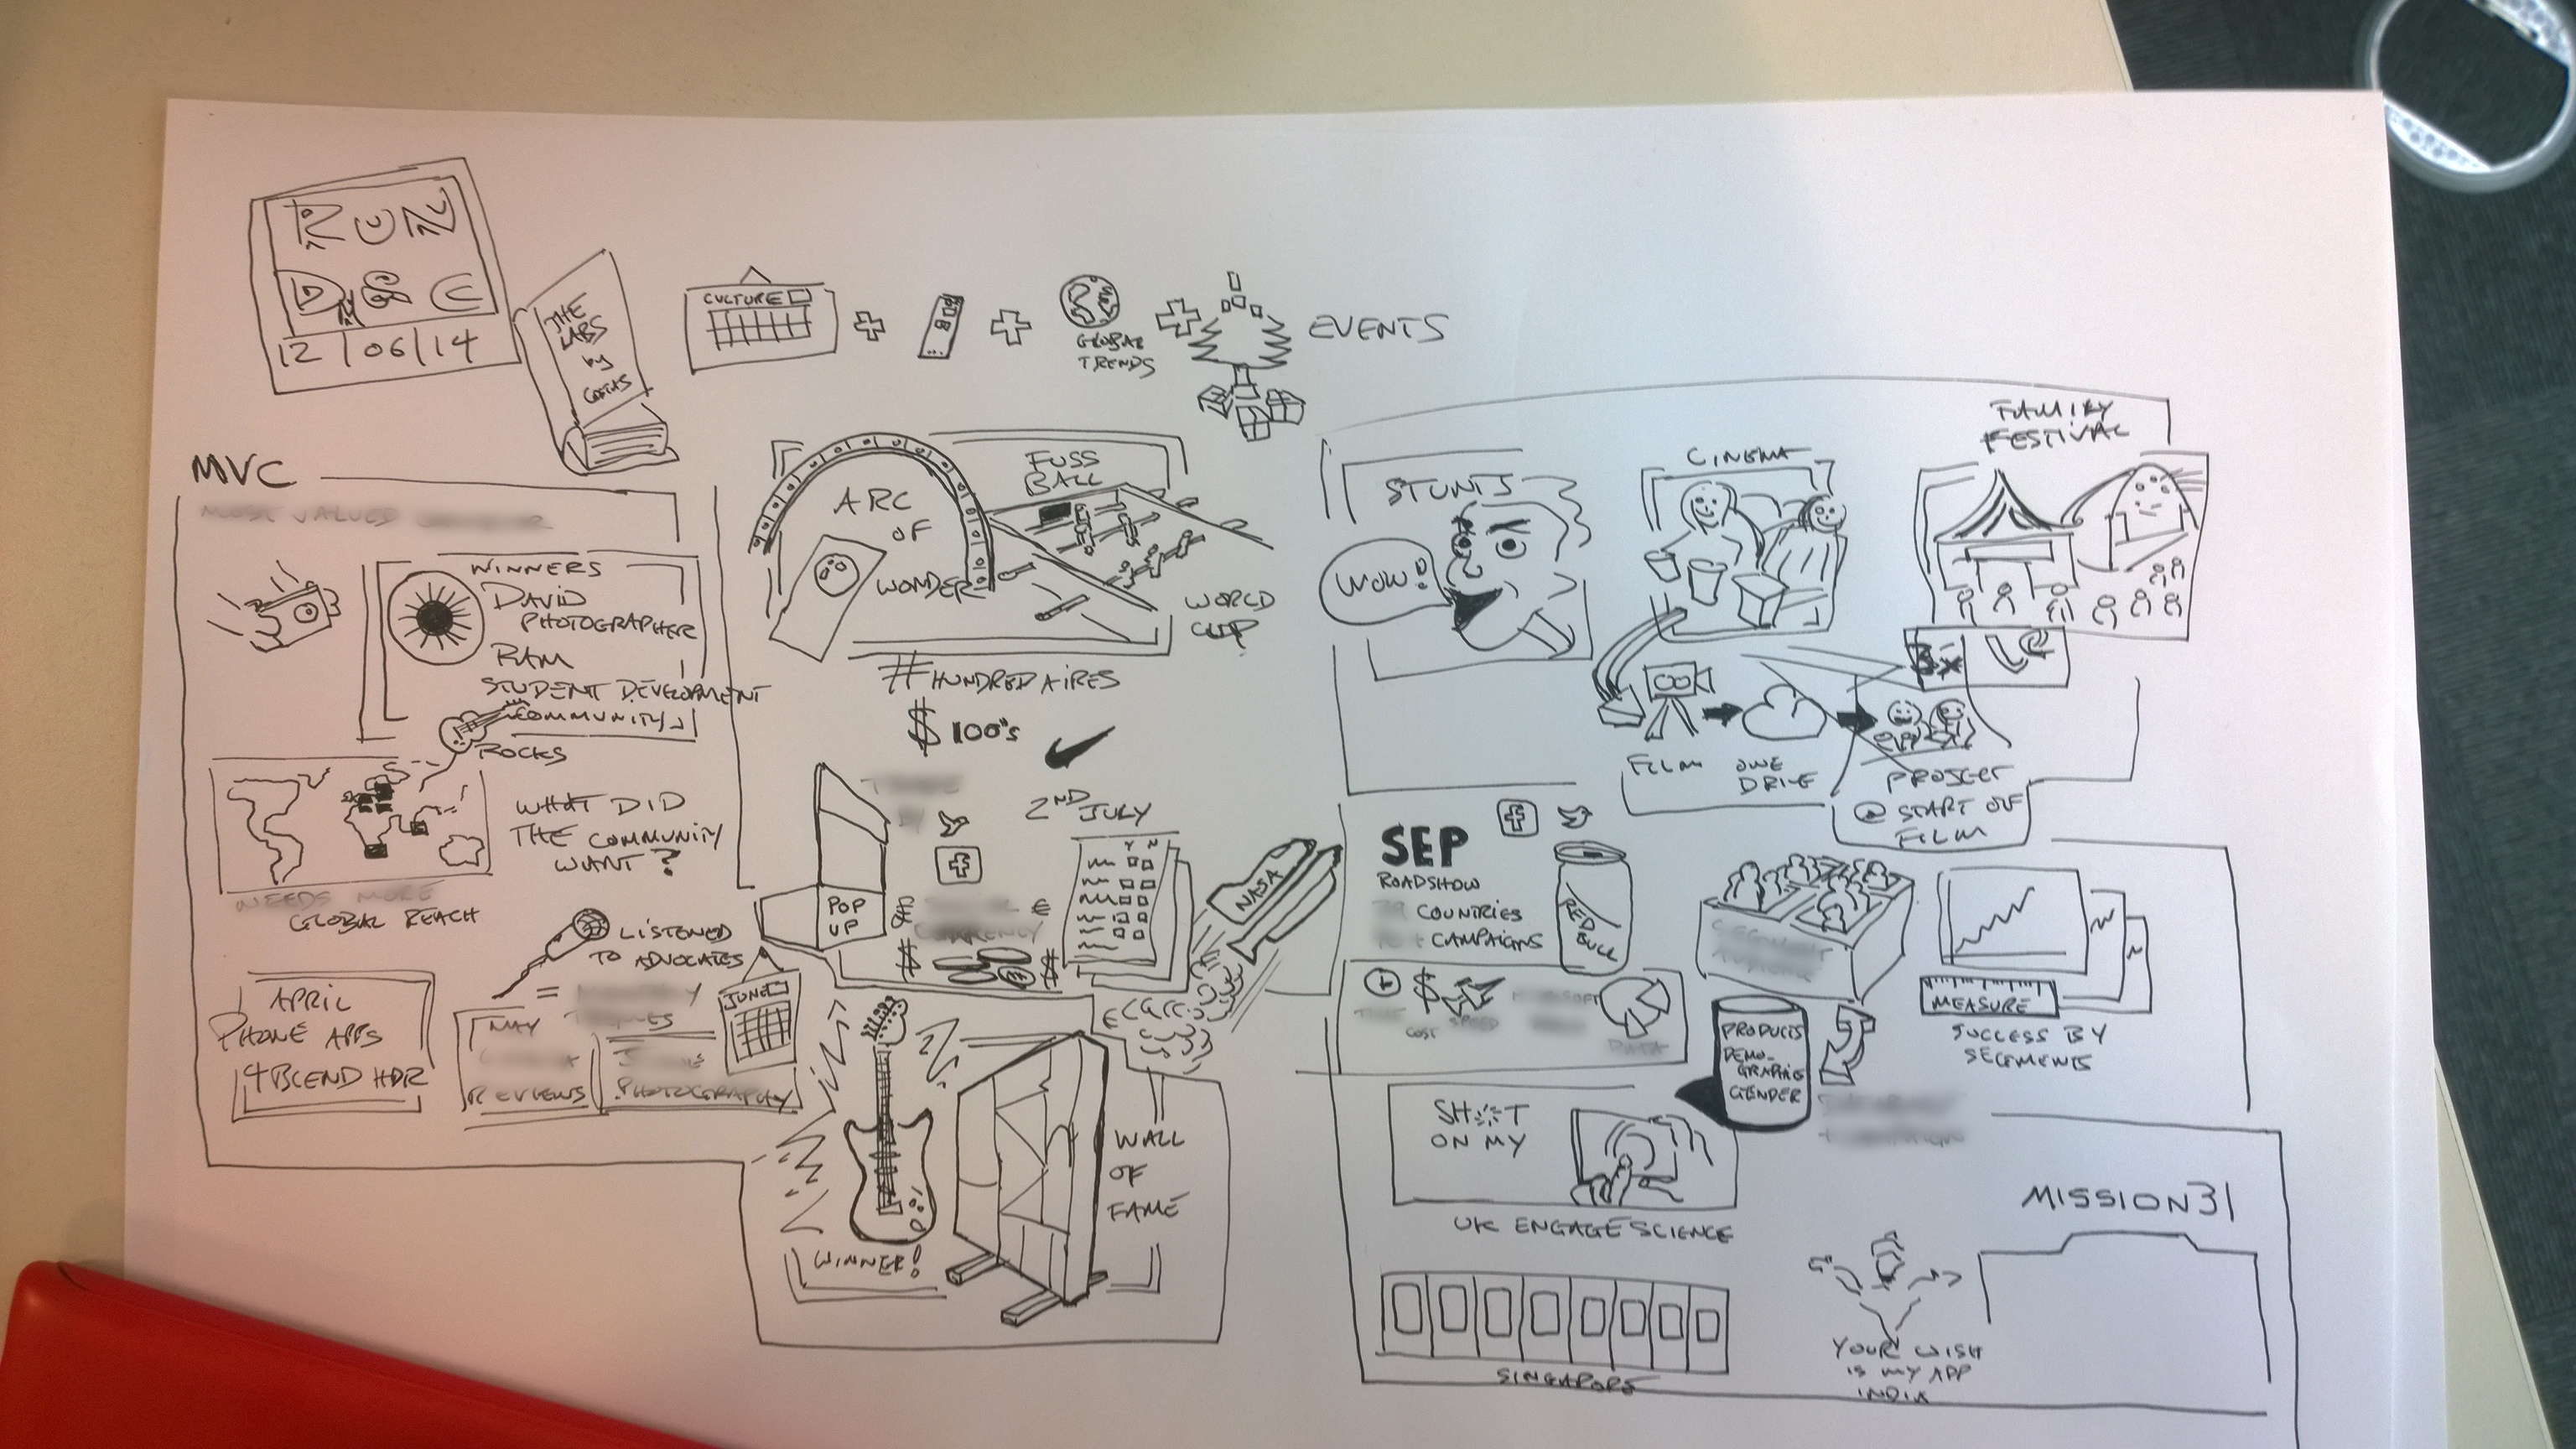 RUN
DMC
12/06/14
THE
LABS
by
CULTURE
GLOBAL
TRENDS
EVENTS
MVC
MOST VALUED
WINNERS
DAVID
PHOTOGRAPHER
RAM
STUDENT DEVELOPMENT
COMMUNITY
ROCKS
WHAT DID
THE COMMUNITY
WANT?
NEEDS MORE
GLOBAL REACH
LISTENED
TO ADVOCATES
=
APRIL
PHONE APPS
4BLEND HDR
MAY
REVIEWS
JUNE
PHOTOGRAPHY
ARC
OF
WONDER
FUSS
BALL
WORLD
CUP
#HUNDREDAIRES
$ 100's
2ND
JULY
Y N
POP
UP
CURRENCY
NASA
WINNER!
WALL
OF
FAME
STUNTS
WOW!
CINEMA
FAMILY
FESTIVAL
FILM
ONE
DRIVE
PROJECT
@ START OF
FILM
SEP
ROADSHOW
COUNTRIES
CAMPAIGNS
RED
BULL
COST
SPEED
DATA
MEASURE
SUCCESS BY
SEGMENTS
PRODUCTS
DEMO-
GRAPHIC
GENDER
SHOT
ON MY
UK ENGAGE SCIENCE
SINGAPORE
MISSION31
YOUR WISH
IS MY APP
INDIA